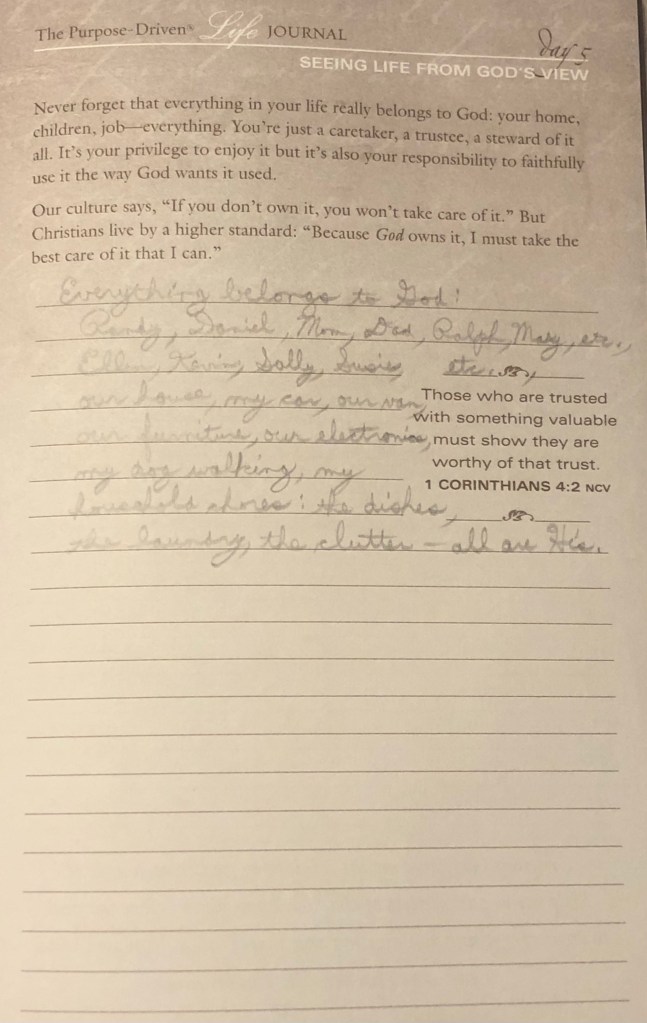 The Purpose-Driven® Life JOURNAL
Day 5
SEEING LIFE FROM GOD'S VIEW
Never forget that everything in your life really belongs to God: your home,
children, job—everything. You're just a caretaker, a trustee, a steward of it
all. It's your privilege to enjoy it but it's also your responsibility to faithfully
use it the way God wants it used.
Our culture says, “If you don't own it, you won't take care of it.” But
Christians live by a higher standard: “Because God owns it, I must take the
best care of it that I can.”
Everything belongs to God:
Randy, Daniel, Mom, Dad, Ralph, Mary, etc.,
Ellen, Sally, Susie, etc.,
our house, my car, our van,
our furniture, our electronics,
my dog walking, my
household chores: the dishes,
the laundry, the clutter – all are His.
Those who are trusted
with something valuable
must show they are
worthy of that trust.
1 CORINTHIANS 4:2 NCV